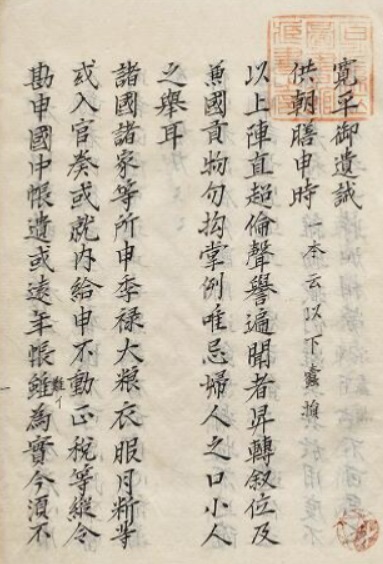 寛平御遺誡
供朝膳申時 一本云以下蠧損
以上陣直超倫聲譽遍聞者昇轉叙位及
兼國貢物勾抅掌例唯忌婦人之口小人
之舉耳
諸國諸家等所申季禄大粮衣服月断等
或入官奏或就内給申不動正税等縦令
勘申國中帳遺或遠年帳雖為實今須不